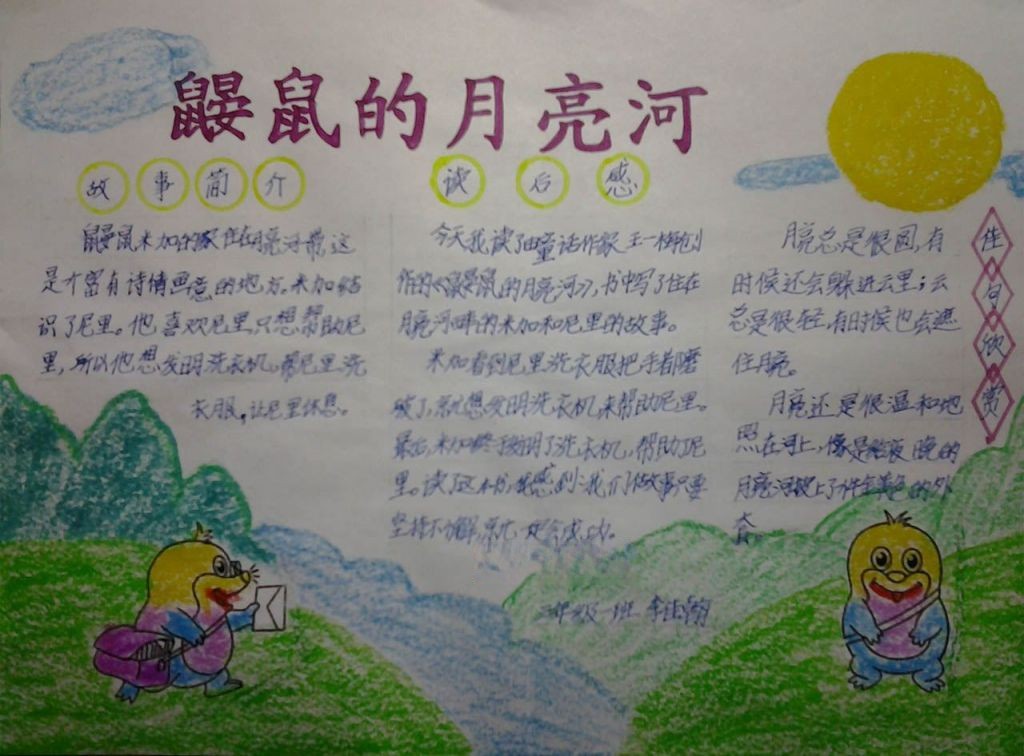 鼹鼠的月亮河
故事简介
鼹鼠米加的家住在月亮河旁,这
是个富有诗情画意的地方,米加结
识了尼里。他喜欢尼里,只想帮助尼
里,所以他想发明洗衣机。帮尼里洗
衣服,让尼里休息。
读后感
今天我读了由童话作家王一梅创
作的《鼹鼠的月亮河》,书中写了住在
月亮河畔的米加和尼里的故事。
米加看到尼里洗衣服把手都磨
破了,就想发明洗衣机来帮助尼里。
最后,米加终于发明了洗衣机,帮助了尼
里。读了这本书,我感到:我们做事只要
坚持不懈,就一定会成功。
年级一班 李
佳句欣赏
月亮总是很圆,有
时候还会躲进云里;云
总是很轻,有时候也会遮
住月亮。
月亮还是很温和地
照在河上,像是给夜晚的
月亮河披上了件金色的外
套。